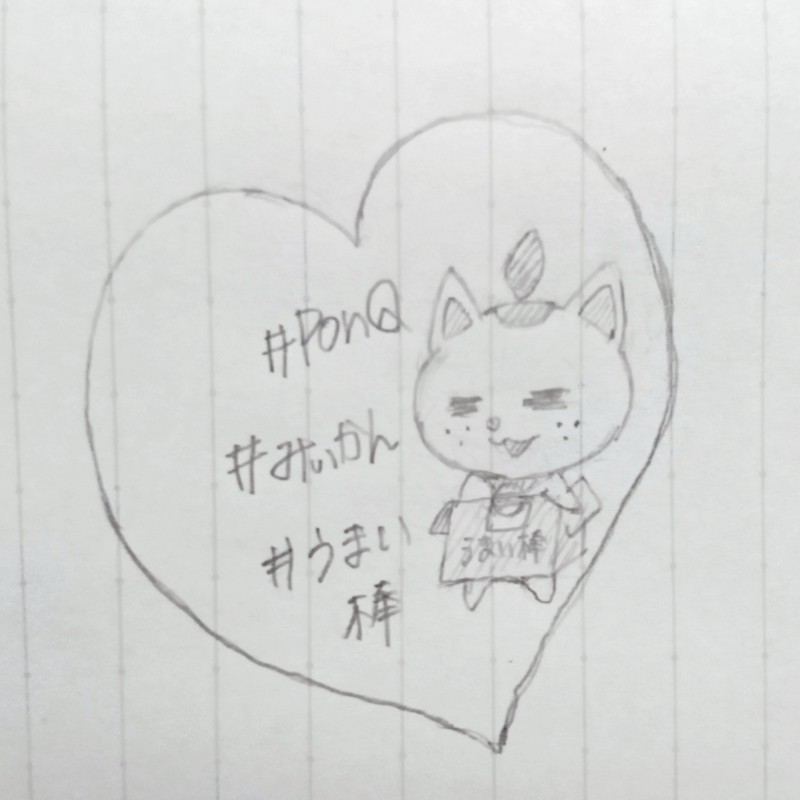 #PonQ
#みいかん
#うまい
棒
うまい棒